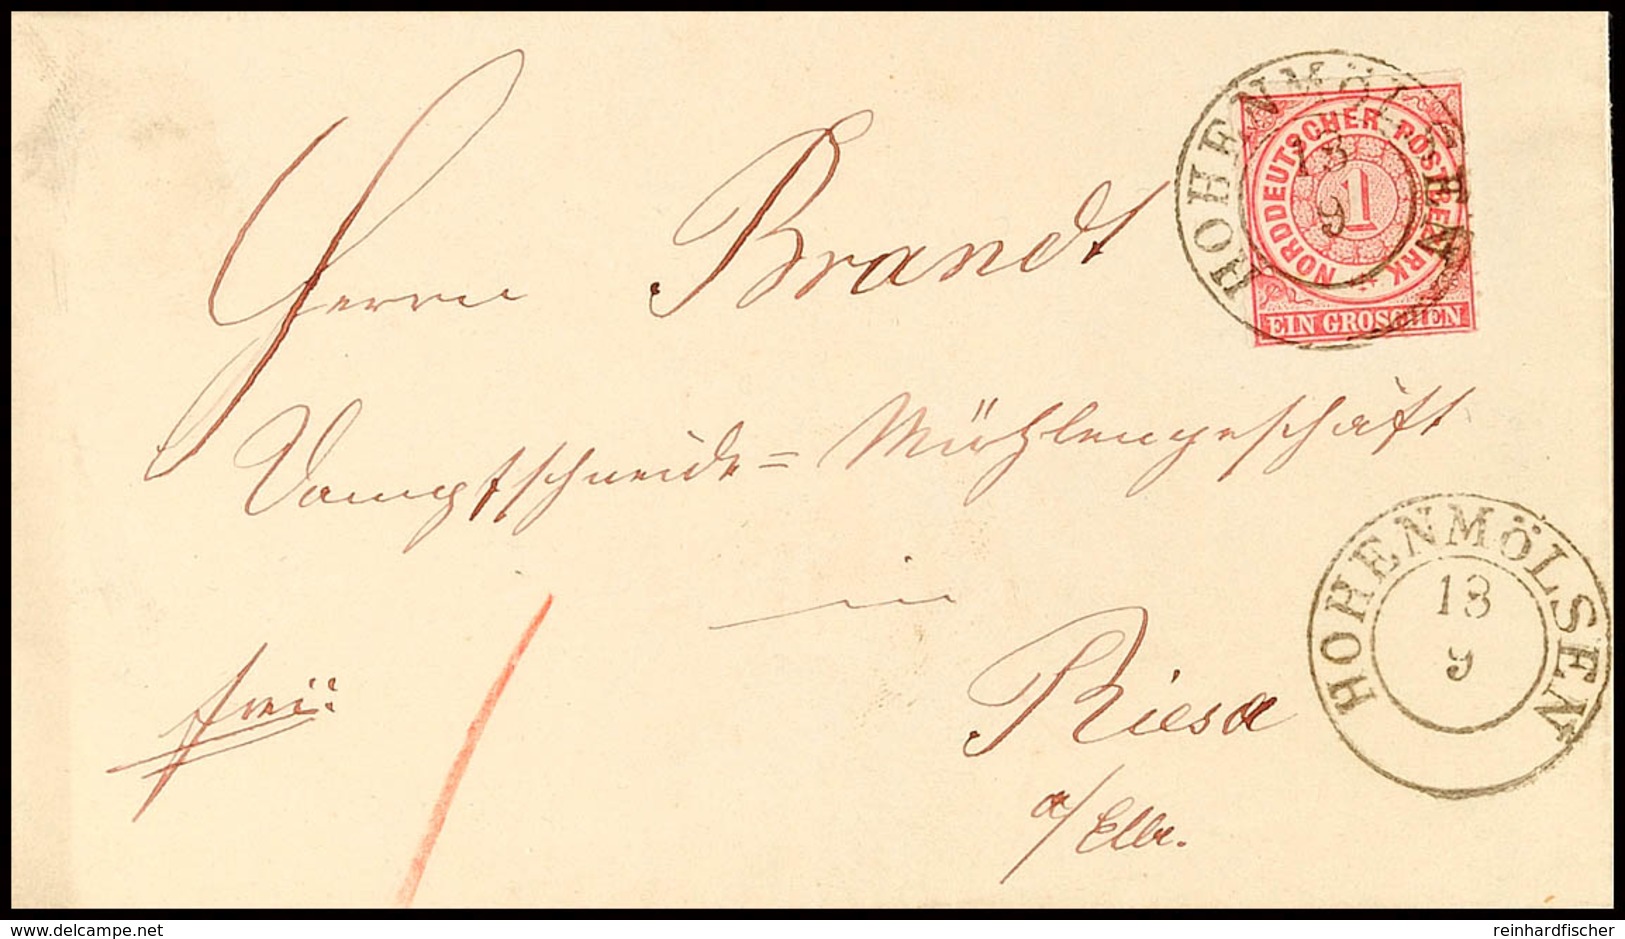 HOHENMÖLSEN
13
9
NORDDEUTSCHER POSTBEZIRK
1
EIN GROSCHEN
Herrn Brandt
Dampfschneide=Mühlengeschäft
in
Riesa
a/Elbe.
frei
HOHENMÖLSEN
13
9
delcampe.net
reinhardfischer